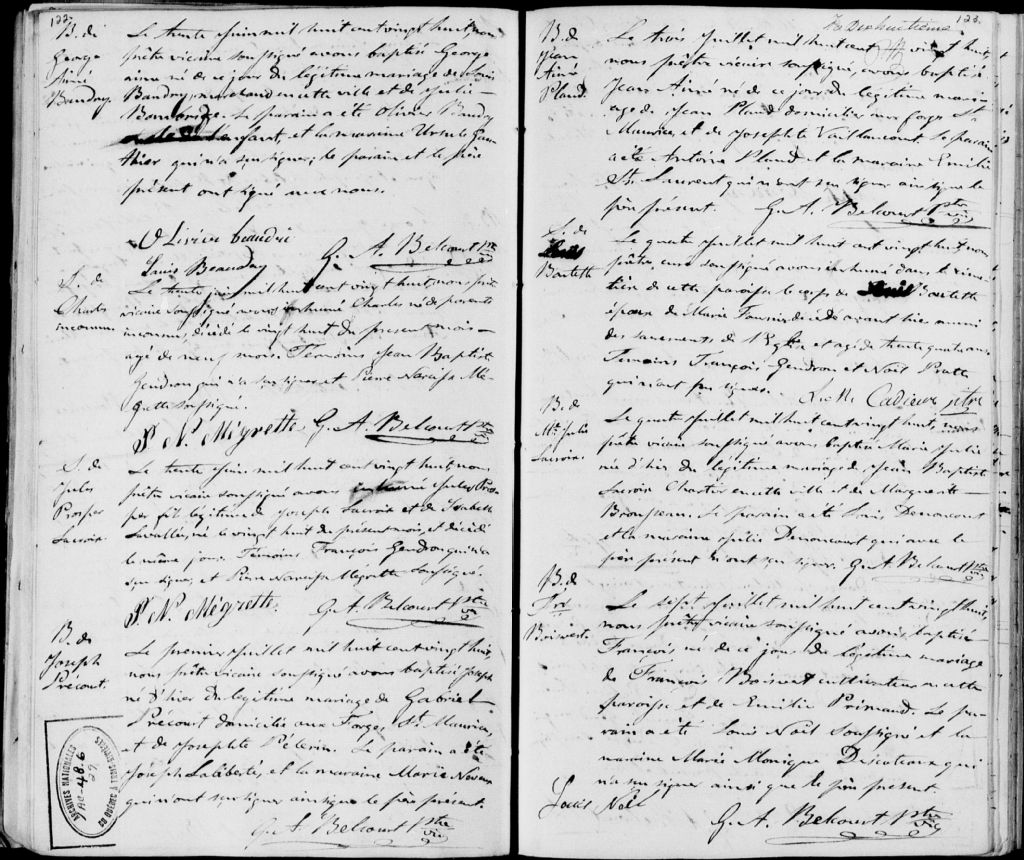 122.
B. de
George
Aimé
Baudry
Le trente Juin mil huit cent vingt huit nous
prêtre vicaire soussigné avons baptisé George
aimé né de ce jour du légitime mariage de Louis
Baudry, marchand en cette ville et de Julie
Bambridge. Le parain a été Olivier Baudry
et la maraine Ursule Gau
thier qui n'a su signer; le parain et le père
présent ont signé avec nous.
Olivier Beaudri
Louis Beaudry
G. A. Belcourt Ptre
S. de
Charles
inconnu.
Le trente Juin mil huit cent vingt huit, nous prêtre
vicaire soussigné avons inhumé Charles né de parents
inconnus, décédé le vingt huit du présent mois
agé de neuf mois. Témoins Jean Baptiste
Gendron qui n'a su signer et Pierre Narcisse Mé-
grette soussigné.
P. N. Mégrette G. A. Belcourt Ptre
S. de
Jules
Prosper
Lacroix
Le trente Juin mil huit cent vingt huit, nous
prêtre vicaire soussigné avons inhumé Jules Pros
per fils légitime de Joseph Lacroix et de Isabelle
Lavallée, né le vingt huit du présent mois, et décédé
le même jour. Témoins François Gendron qui n'a
su signer, et Pierre Narcisse Mégrette soussigné.
P. N. Mégrette. G. A. Belcourt Ptre
B. de
Joseph
Précourt.
Le premier Juillet mil huit cent vingt huit,
nous prêtre vicaire soussigné avons baptisé Joseph
né d'hier du légitime mariage de Gabriel
Précourt domicilié aux Forges St. Maurice,
et de Josephte Pélerin. Le parain a été
Joseph Laliberté, et la maraine Marie
qui n'ont su signer ainsi que le père présent.
G. A. Belcourt Ptre
Vic
ARCHIVES NATIONALES
DU QUÉBEC À TROIS-RIVIÈRES
123.
dixhuitième
B. de
Jean
Aimé
Pland.
Le trois Juillet mil huit cent vingt huit,
nous prêtre vicaire soussigné, avons baptisé
Jean Aimé né de ce jour du légitime mari-
age de Jean Pland domicilié aux forges St
Maurice, et de Josephte Vaillancourt. Le parain
a été Antoine Pland et la maraine Emilie
St. Laurent qui n'ont su signer ainsi que le
père présent. G. A. Belcourt Ptre
S. de
Le quatre Juillet mil huit cent vingt huit nous
prêtre, curé soussigné avons inhumé dans le cime-
tière de cette paroisse le corps de
époux de Marie Fournier décédé avant hier muni
des sacrements de l'Eglise et agé de trente quatre ans.
Témoins François Gendron et Noël Pratte
qui n'ont su signer. Cadieux ptre
B. de
Mie Julie
Lacroix.
Le quatre Juillet mil huit cent vingt huit, nous
prêtre vicaire soussigné avons baptisé Marie Julie
née d'hier du légitime mariage de Jean Baptiste
Lacroix Charretier en cette ville et de Marguerite
Brousseau. Le parain a été Louis Denoncourt
et la maraine Julie Denoncourt qui avec le
père présent n'ont su signer. G. A. Belcourt Ptre
B. de
Frs
Boisvert.
Le sept Juillet mil huit cent vingt huit,
nous prêtre vicaire soussigné avons baptisé
François, né de ce jour du légitime mariage
de François Boisvert cultivateur en cette
paroisse et de Emilie Primaud. Le pa-
rain a été Louis Noël soussigné et la
maraine Marie Monique qui
n'a su signer ainsi que le père présent
Louis Noël
G. A. Belcourt Ptre
Vic